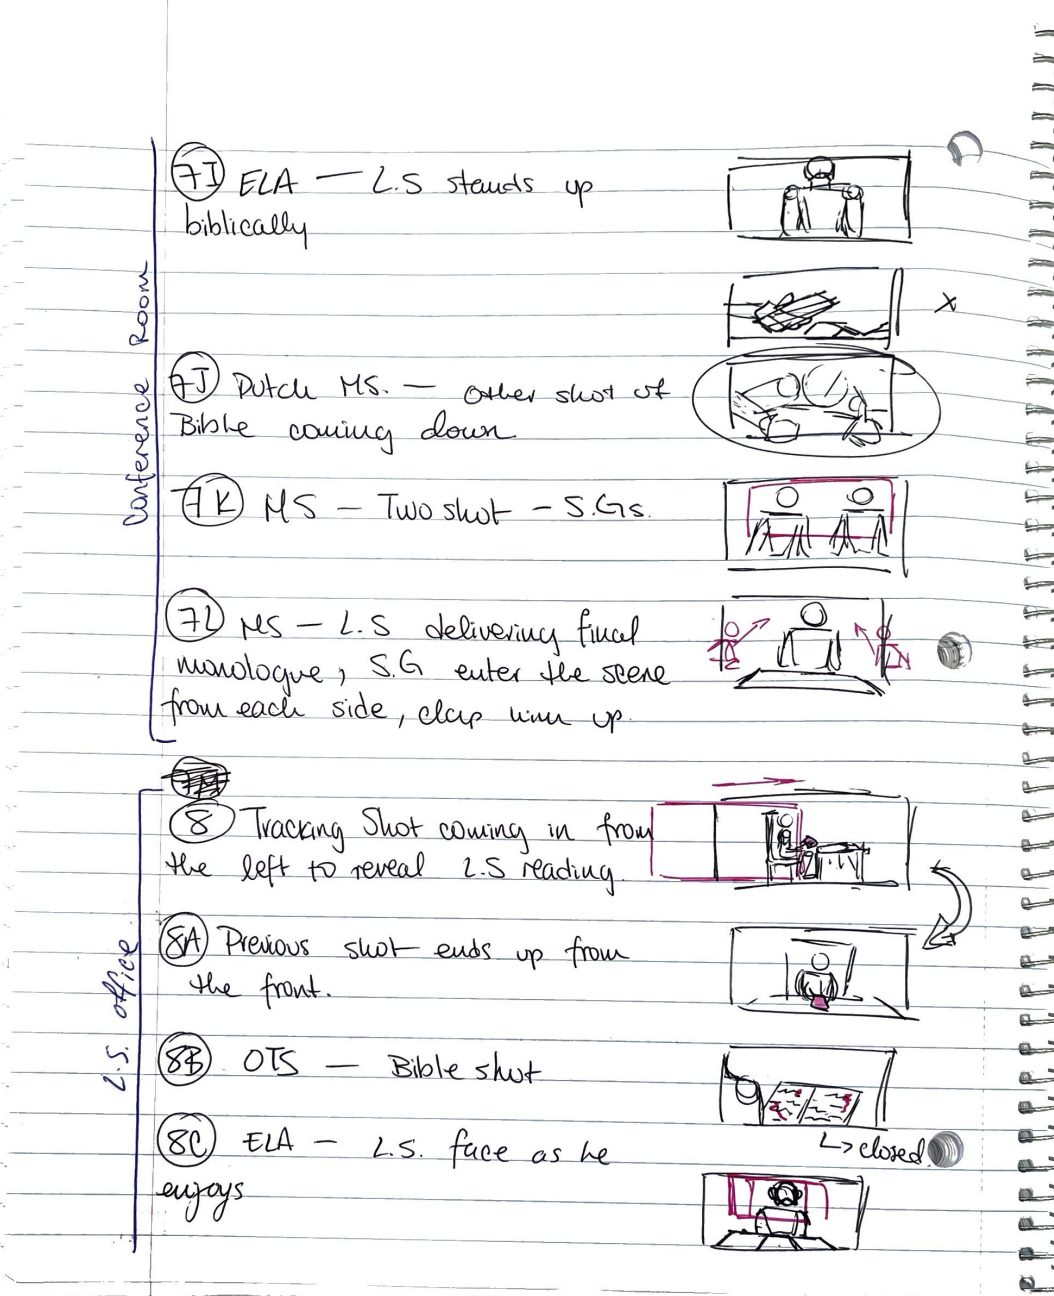 Conference Room
7I ELA — L.S stands up
biblically
x
7J Dutch MS. — other shot of
Bible coming down
7K MS — Two shot — S.Gs.
7L MS — L.S delivering final
monologue, S.G enter the scene
from each side, clap him up.
L.S. office
8 Tracking Shot coming in from
the left to reveal L.S reading.
8A Previous shot ends up from
the front.
8B OTS — Bible shot
↳ closed.
8C ELA — L.S. face as he
enjoys